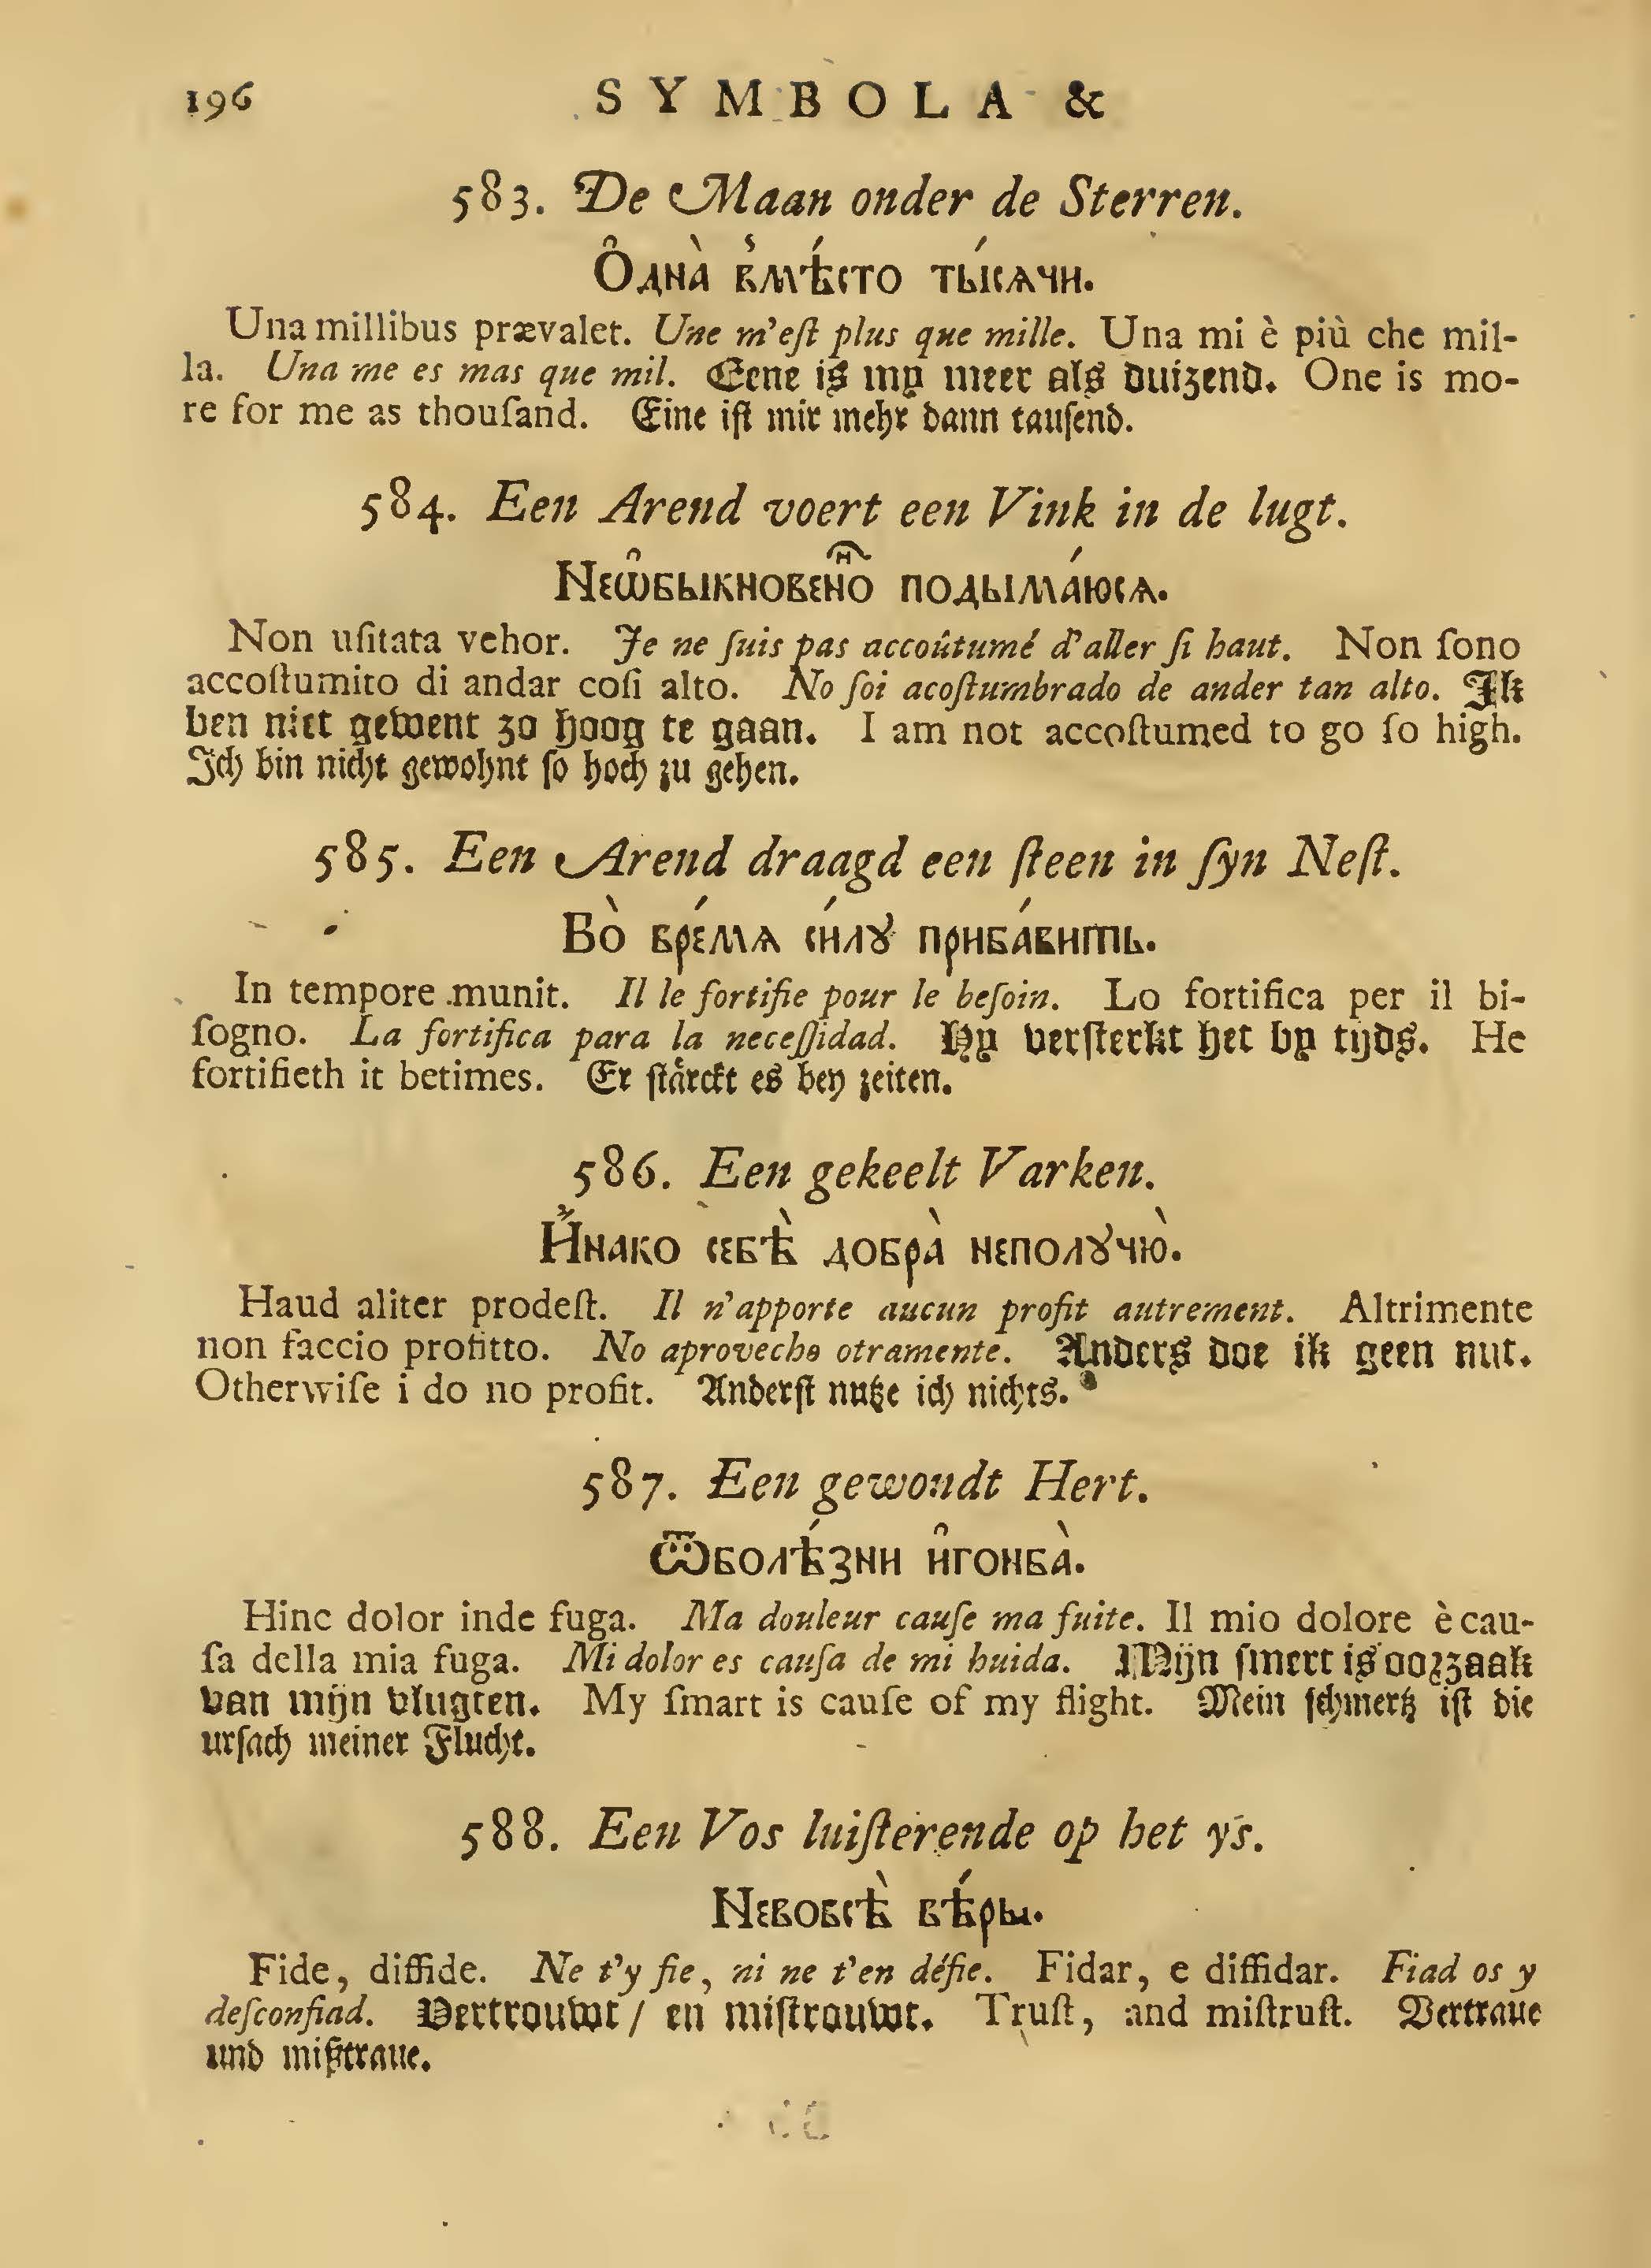 196 SYMBOLA &
583. De Maan onder de Sterren.
Ѻ҆дна̀ в҆мѣ́сто ты́сѧчи.
Una millibus prævalet. Une m'eſt plus que mille. Una mi è più che mil-
la. Una me es mas que mil. Eene is my meer als duizend. One is mo-
re for me as thouſand. Eine iſt mir mehr dann tauſend.
584. Een Arend voert een Vink in de lugt.
Неѡ҆быкновеⷩ҇но подыма́юсѧ.
Non uſitata vehor. Je ne ſuis pas accoûtumé d'aller ſi haut. Non ſono
accoſtumito di andar coſi alto. No ſoi acoſtumbrado de ander tan alto. Ik
ben niet gewent zo hoog te gaan. I am not accoſtumed to go ſo high.
Ich bin nicht gewohnt ſo hoch zu gehen.
585. Een Arend draagd een ſteen in ſyn Neſt.
Во̀ вре́мѧ си́лꙋ приба́вить.
In tempore munit. Il le fortifie pour le beſoin. Lo fortifica per il bi-
ſogno. La fortifica para la neceſſidad. Hy verſterkt het by tijds. He
fortifieth it betimes. Er ſtärckt es bey zeiten.
586. Een gekeelt Varken.
И҆́нако себѣ̀ добра̀ неполꙋчю̀.
Haud aliter prodeſt. Il n'apporte aucun profit autrement. Altrimente
non faccio profitto. No aprovecho otramente. Anders doe ik geen nut.
Otherwiſe i do no profit. Anderſt nutze ich nichts.
587. Een gewondt Hert.
Ѿболѣ́зни и҆гоньба̀.
Hinc dolor inde fuga. Ma douleur cauſe ma fuite. Il mio dolore è cau-
ſa della mia fuga. Mi dolor es cauſa de mi huida. Mijn ſmert is oorzaak
van mijn vlugten. My ſmart is cauſe of my flight. Mein ſchmertz iſt die
urſach meiner Flucht.
588. Een Vos luiſterende op het ys.
Невовсѣ̀ вѣ́ры.
Fide, diffide. Ne t'y fie, ni ne t'en défie. Fidar, e diffidar. Fiad os y
deſconfiad. Vertrouwt / en miſtrouwt. Truſt, and miſtruſt. Vertraue
und mißtraue.